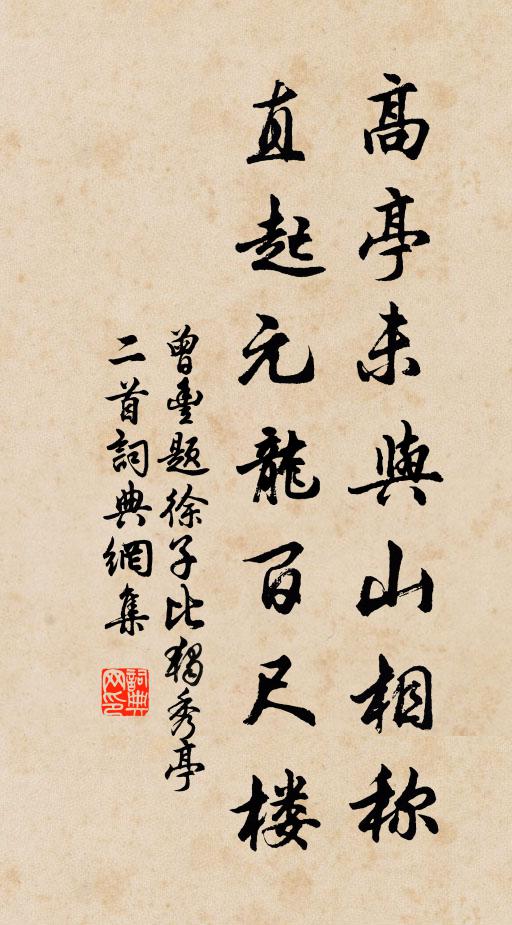 高亭未與山相称
直起元龍百尺楼
曾豊题徐子比獨秀亭
二首詞典網集
詞典网印